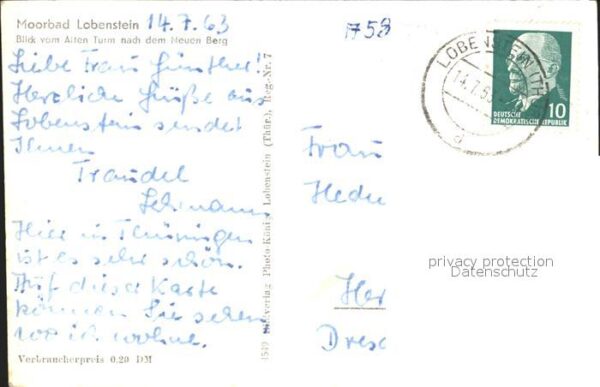 Moorbad Lobenstein 14.7.63
Blick vom Alten Turm nach dem Neuen Berg
Liebe Frau Günther!
Herzliche Grüße aus
Lobenstein sendet
Ihnen
Traudel
Lehmann
Hier in Thüringen
ist es sehr schön.
Auf dieser Karte
können Sie sehen
wo ich wohne.
Verbraucherpreis 0,20 DM
Lobenstein (Thür.), Reg.-Nr. 7
1758
LOBENSTEIN (TH
14.7.63
a
10
DEUTSCHE
DEMOKRATISCHE REPUBLIK
Frau
Hedw
privacy protection
Datenschutz
Her
Dres